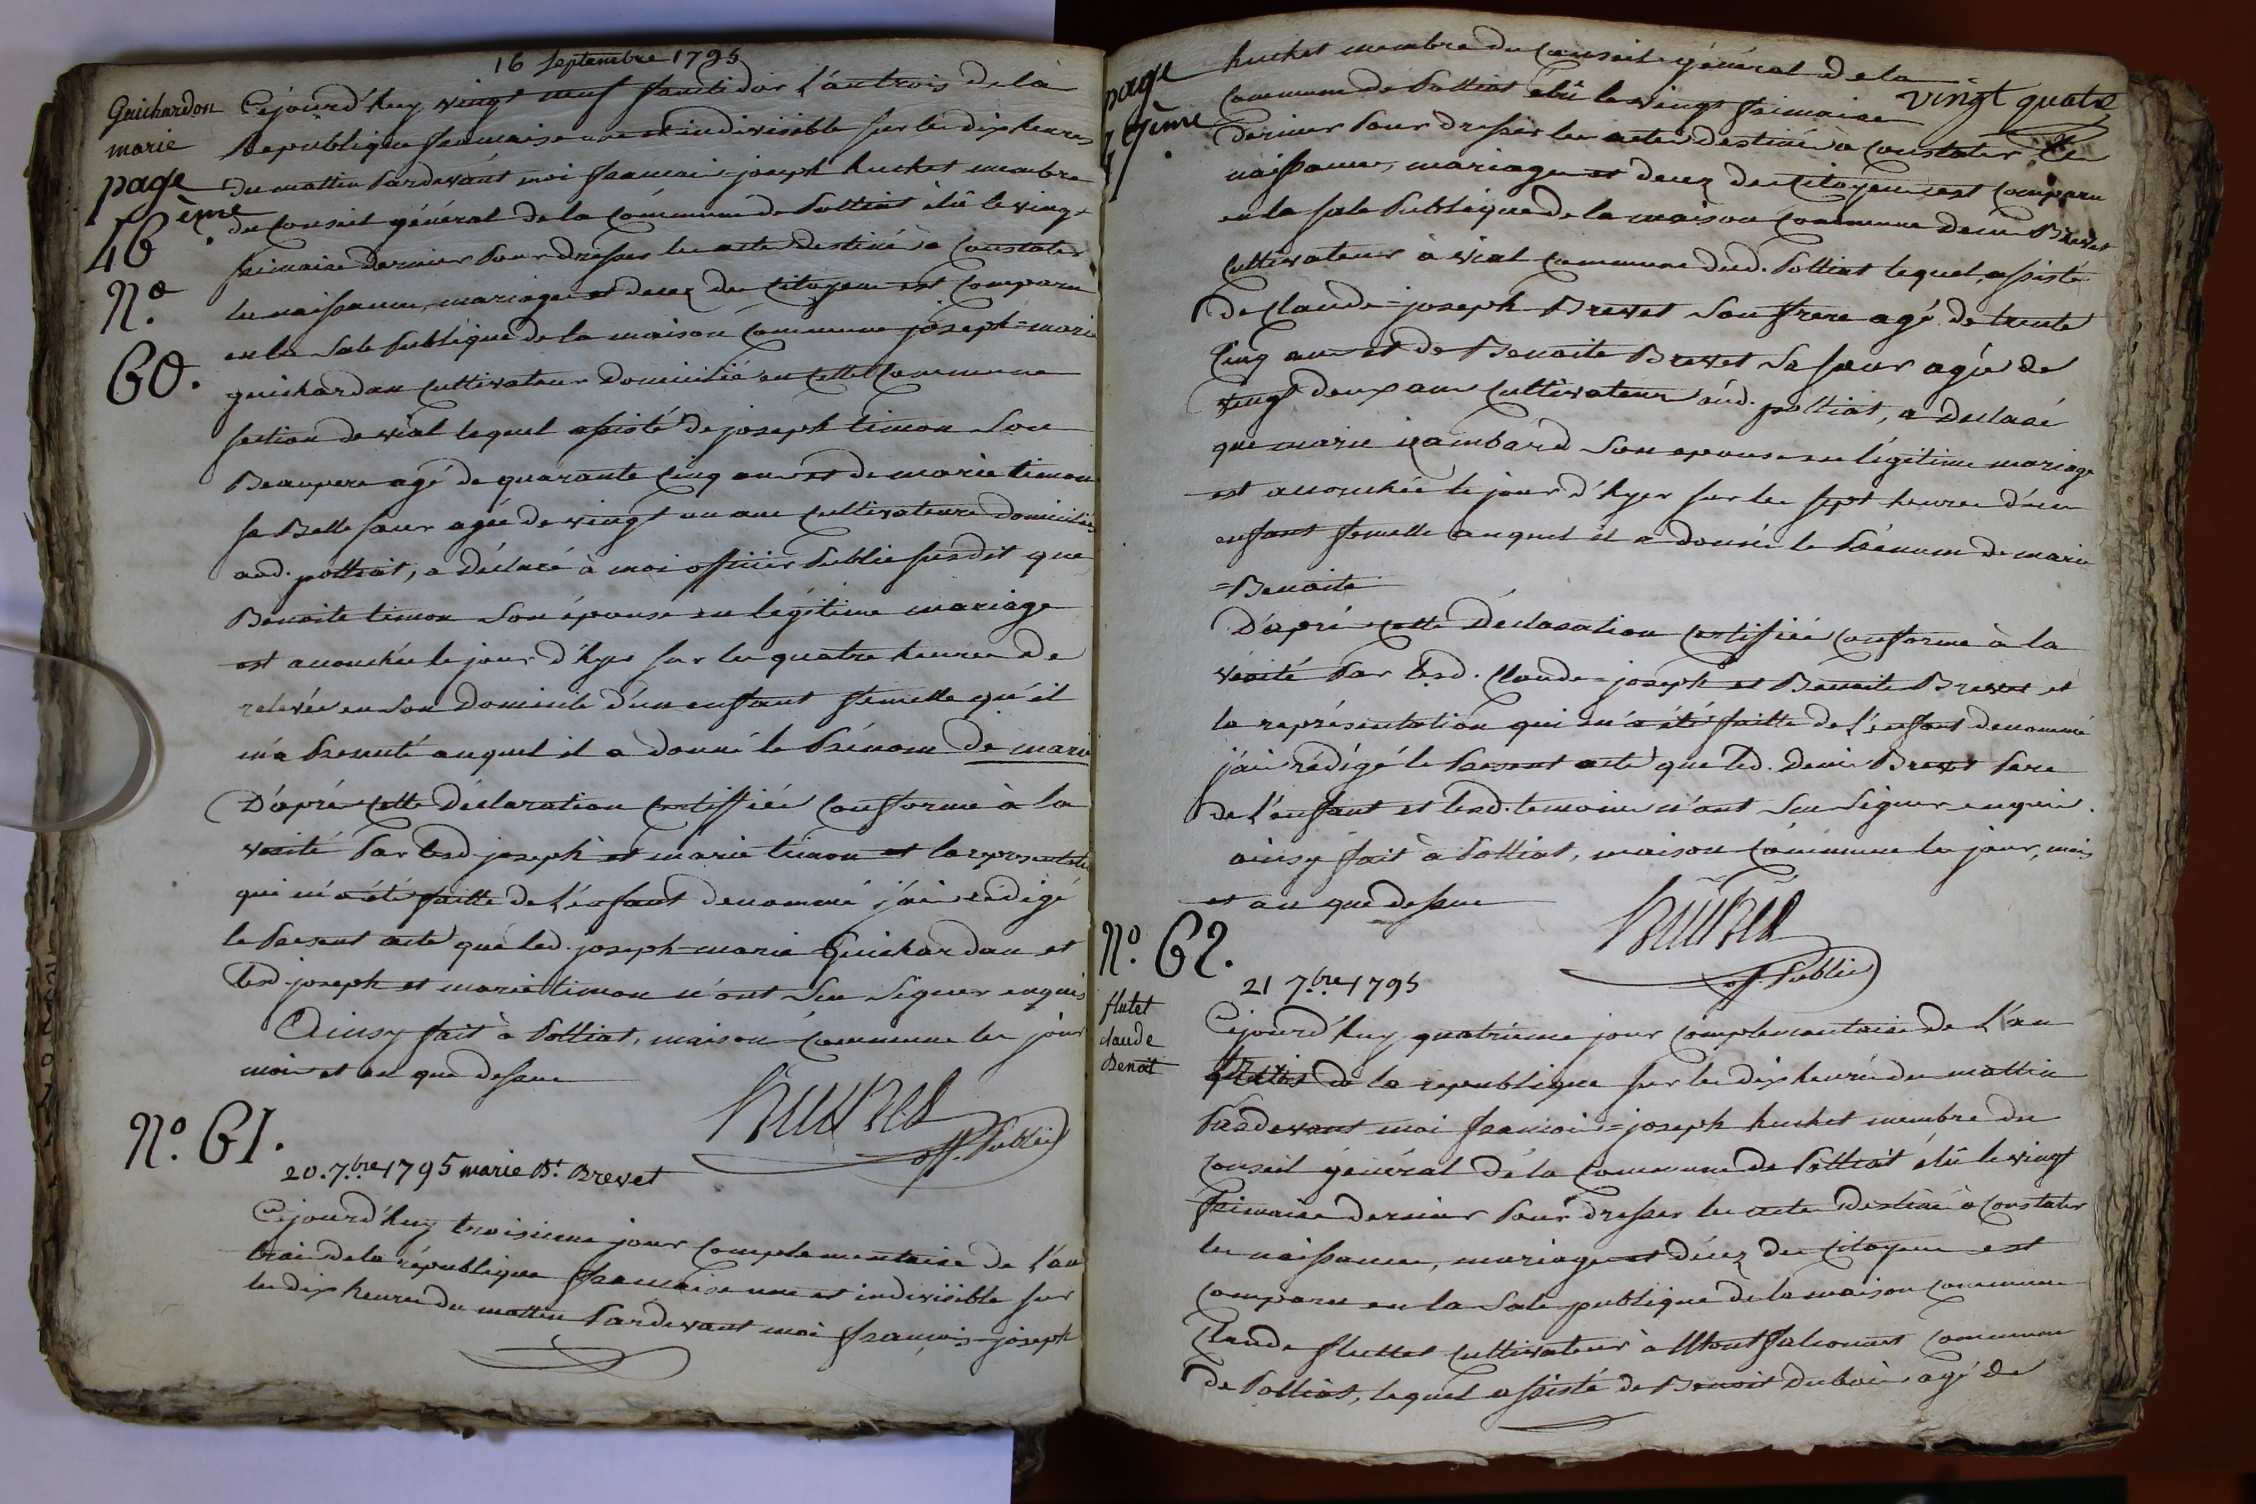 16 Septembre 1795
Guichardon
marie
page
46ème.
N.º
60.
Cejourd'huy vingt neuf fructidor L'an trois de la
Republique francaise une et indivisible sur les dix heures
du mattin Pardevant moi francois joseph huchet membre
du Conseil général de la Commune de Polliat élû le vingt
frimaire dernier Pour dresser les actes destiné à Constater
les naissances, mariages et decez des citoyens est Comparu
en la Sale Publique de la maison Commune joseph=marie
guichardan cultivateur domicilié en cette Commune
section de vial lequel assisté de joseph timon Son
Beaupere agé de quarante Cinq ans et de marie timon
sa Belle sœur agée de vingt un ans cultivateurs domiciliés
aud. polliat, a déclaré à moi officier Public susdit que
Benoite timon Son épouse en légitime mariage
est accouchée le jour d'hyer sur les quatre heures de
relevée en Son domicile d'un enfant femelle qu'il
m'a Presenté auquel il a donné le Prénom de marie
D'après cette déclaration certiffiée Conforme à la
verité Par lesd joseph et marie timon et la representation
qui m'a été faitte de L'enfant denommé j'ai rédigé
le Present acte que led. joseph-marie Guichardan et
lesd. joseph et marie timon n'ont Seu Signer enquis
Ainsy fait à Polliat, maison Commune les jour
mois et an que dessus
huchet
off. Public
N.º 61.
20. 7.bre 1795 marie B.t Brevet
Cejourd'huy troisieme jour complementaire de L'an
trois de la république francaise une et indivisible sur
les dix heures du mattin Pardevant moi francois-joseph
page
47ème.
vingt quatre
huchet membre du Conseil général de la
Commune de Polliat élû le vingt frimaire
dernier Pour dresser les actes destiné à Constater les
naissances, mariages et decez des citoyens est comparu
en la sale Publique de la maison Commune denis Brevet
Cultivateur à vial Commune dud. Polliat lequel, assisté
de Claude-joseph Brevet Son frere agé de trente
Cinq ans et de Benoite Brevet Sa sœur agée de
vingt deux ans Cultivateurs aud. polliat, a declaré
que marie izambard Son epouse en légitime mariage
est accouchée le jour d'hyer sur les sept heures d'un
enfant femelle auquel il a donné le Prénom de marie
=Benoite
D'après cette déclaration certiffiée Conforme à la
vérité Par lesd. Claude=joseph et Benoite Brevet et
la représentation qui m'a été faitte de l'enfant denommé
j'ai rédigé le Present acte que led. denis Brevet Pere
de l'enfant et lesd. temoins n'ont Seu Signer enquis.
ainsy fait à Polliat, maison Commune les jour, mois
et an que dessus
huchet
off. Public
N.º 62.
21 7.bre 1795
flutet
claude
Benoit
Cejourd'huy quatrieme jour complementaire de L'an
trois de la republique sur les dix heures du mattin
Pardevant moi francois=joseph huchet membre du
Conseil général de la Commune de Polliat élû le vingt
frimaire dernier Pour dresser les actes destiné à Constater
les naissances, mariages et décez des citoyens est
comparu en la Sale publique de la maison commune
Claude fluttet cultivateur à Montfalconnet commune
de Polliat, lequel assisté de Benoit dubois agé de